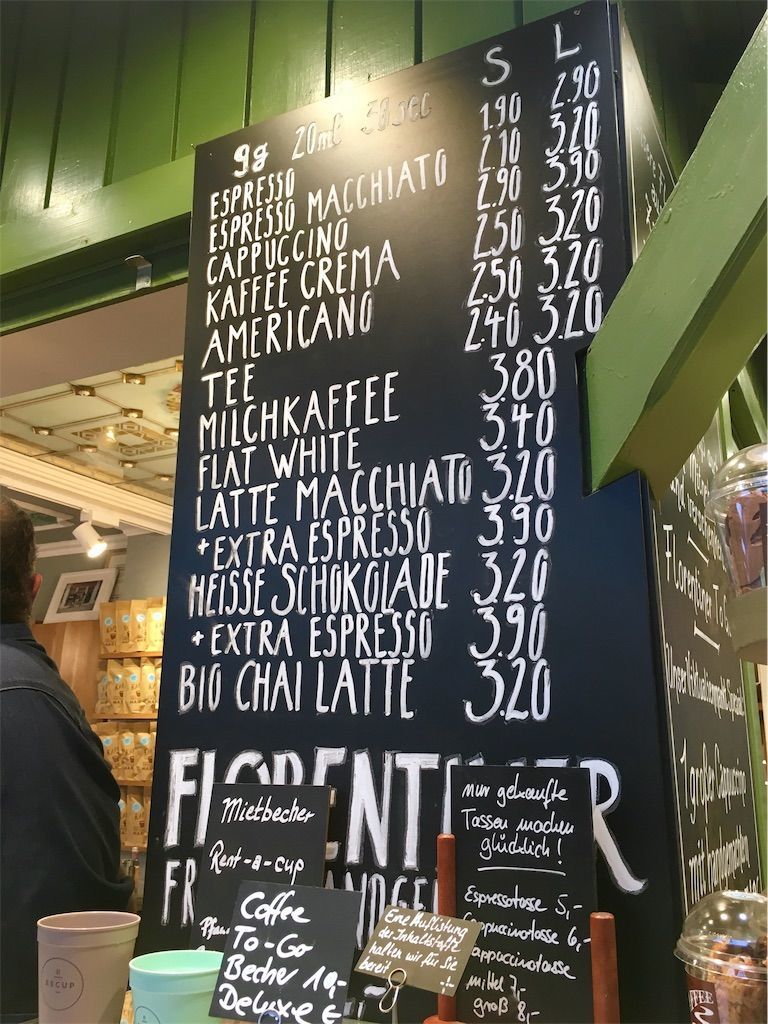 S L
9g 20ml 30sec
ESPRESSO 1.90 2.90
ESPRESSO MACCHIATO 2.10 3.20
CAPPUCCINO 2.90 3.90
KAFFEE CREMA 2.50 3.20
AMERICANO 2.50 3.20
TEE 2.40 3.20
MILCHKAFFEE 3.80
FLAT WHITE 3.40
LATTE MACCHIATO 3.20
+ EXTRA ESPRESSO 3.90
HEISSE SCHOKOLADE 3.20
+ EXTRA ESPRESSO 3.90
BIO CHAI LATTE 3.20
Mietbecher
Rent-a-cup
Coffee
To-Go
Becher 10,-
Deluxe €
Eine Auflistung
der Inhaltstoffe
halten wir für Sie
bereit!
nur gekaufte
Tassen machen
glücklich!
Espressotasse 5,-
Cappuccinotasse 6,-
Cappuccinotasse
mittel 7,-
groß 8,-
Florentiner
Unser Viktualienmarkt
1 großer Cappuccino
mit